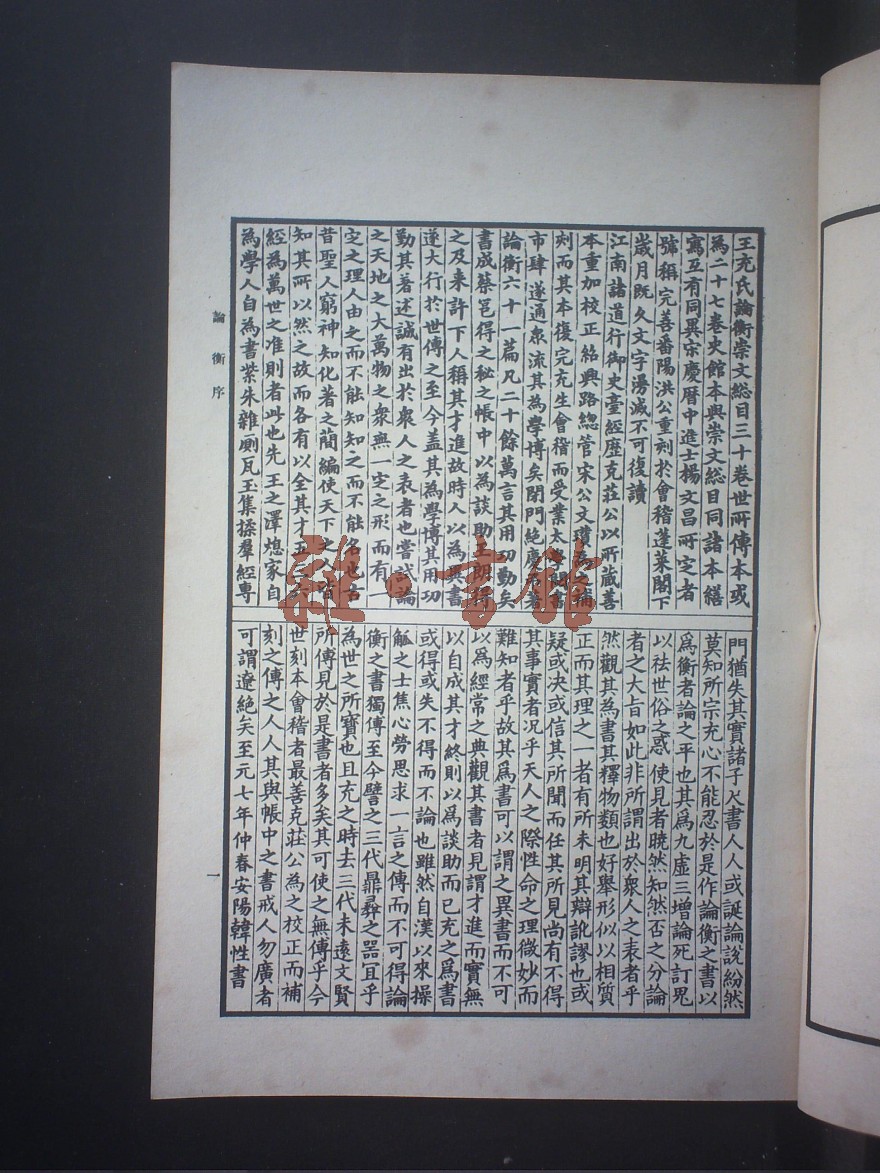 王充氏論衡崇文総目三十卷世所傳本或
為二十七卷史館本與崇文総目同諸本繕
寫互有同異宋慶曆中進士楊文昌所定者
號稱完善番陽洪公重刻於會稽蓬萊閣下
歲月既久文字湯滅不可復讀
江南諸道行御史臺經歷克莊公以所藏善
本重加校正紹興路緫管宋公文瓚為之補
刻而其本復完充生會稽而受業太學閱書
市肆遂通衆流其為學博矣閉門絶慶弔著
論衡六十一篇凡二十餘萬言其用功勤矣
書成蔡邕得之秘之帳中以為談助王朗得
之及来許下人稱其才進故時人以為異書
遂大行於世傳之至今盖其為學博其用功
勤其著述誠有出於衆人之表者也嘗試論
之天地之大萬物之衆無一定之形而有一
定之理人由之而不能知知之而不能名也古
昔聖人窮神知化著之簡編使天下之人皆
知其所以然之故而各有以全其才五三六
經為萬世之准則者此也先王之澤熄家自
為學人自為書紫朱雜厠瓦玉集揉羣經專
門猶失其實諸子尺書人人或誕論說紛然
莫知所宗充心不能忍於是作論衡之書以
為衡者論之平也其為九虛三增論死訂鬼
以祛世俗之惑使見者曉然知然否之分論
者之大旨如此非所謂出於衆人之表者乎
然觀其為書其釋物類也好舉形似以相質
正而其理之一者有所未明其辯訛謬也或
疑或决或信其所聞而任其所見尚有不得
其事實者况乎天人之際性命之理微妙而
難知者乎故其為書可以謂之異書而不可
以為經常之典觀其書者見謂才進而實無
以自成其才終則以為談助而已充之為書
或得或失不得而不論也雖然自漢以來操
觚之士焦心勞思求一言之傳而不可得論
衡之書獨傳至今譬之三代鼎彞之器宜乎
為世之所寶也且充之時去三代未遠文賢
所傳見於是書者多矣其可使之無傳乎今
世刻本會稽者最善克莊公為之校正而補
刻之傳之人人其與帳中之書戒人勿廣者
可謂遼絕矣至元七年仲春安陽韓性書
論衡序
一
雜·書館